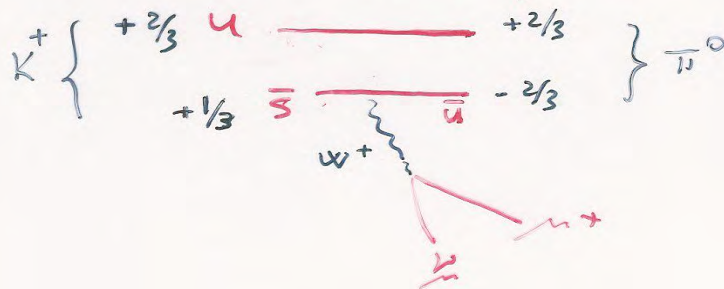 K⁺ { +2/3 u +2/3 } π⁰
+1/3 s̄ ū -2/3
W⁺
μ⁺
ν